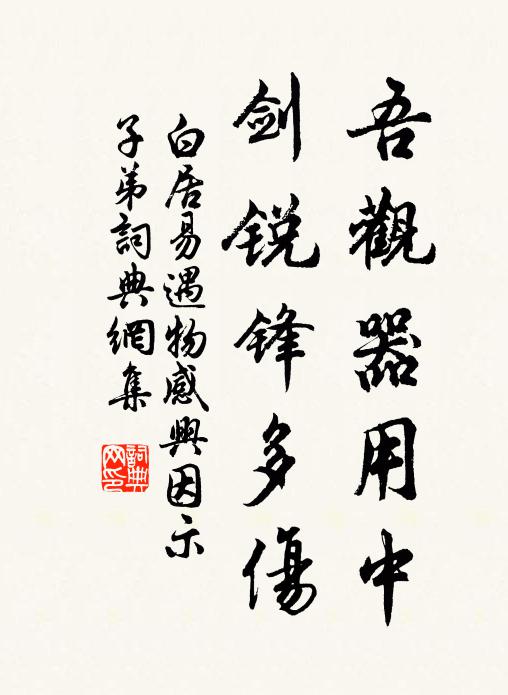 吾觀器用中
劍锐锋多傷
白居易遇物感興因示
子弟詞典網集
詞典
网印